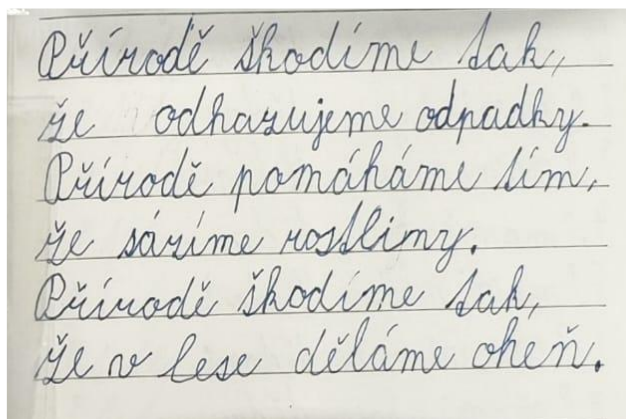 Přírodě škodíme tak,
že odhazujeme odpadky.
Přírodě pomáháme tím,
že sázíme rostliny.
Přírodě škodíme tak,
že v lese děláme oheň.